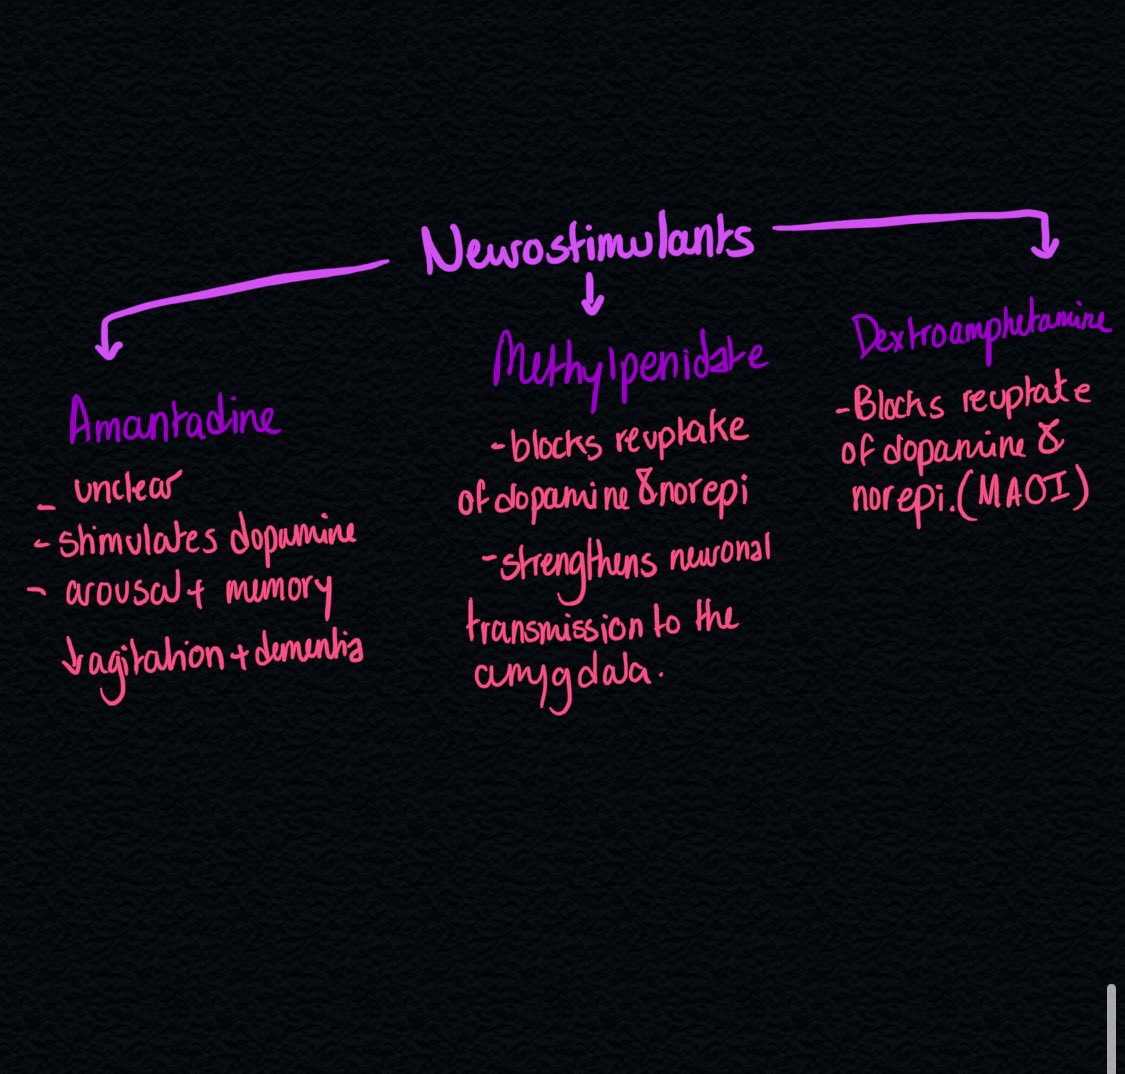 Neurostimulants
Amantadine
- unclear
- stimulates dopamine
- arousal + memory
↓ agitation + dementia
Methylpenidate
- blocks reuptake
of dopamine & norepi
- strengthens neuronal
transmission to the
amygdala.
Dextroamphetamine
- Blocks reuptate
of dopamine &
norepi. (MAOI)